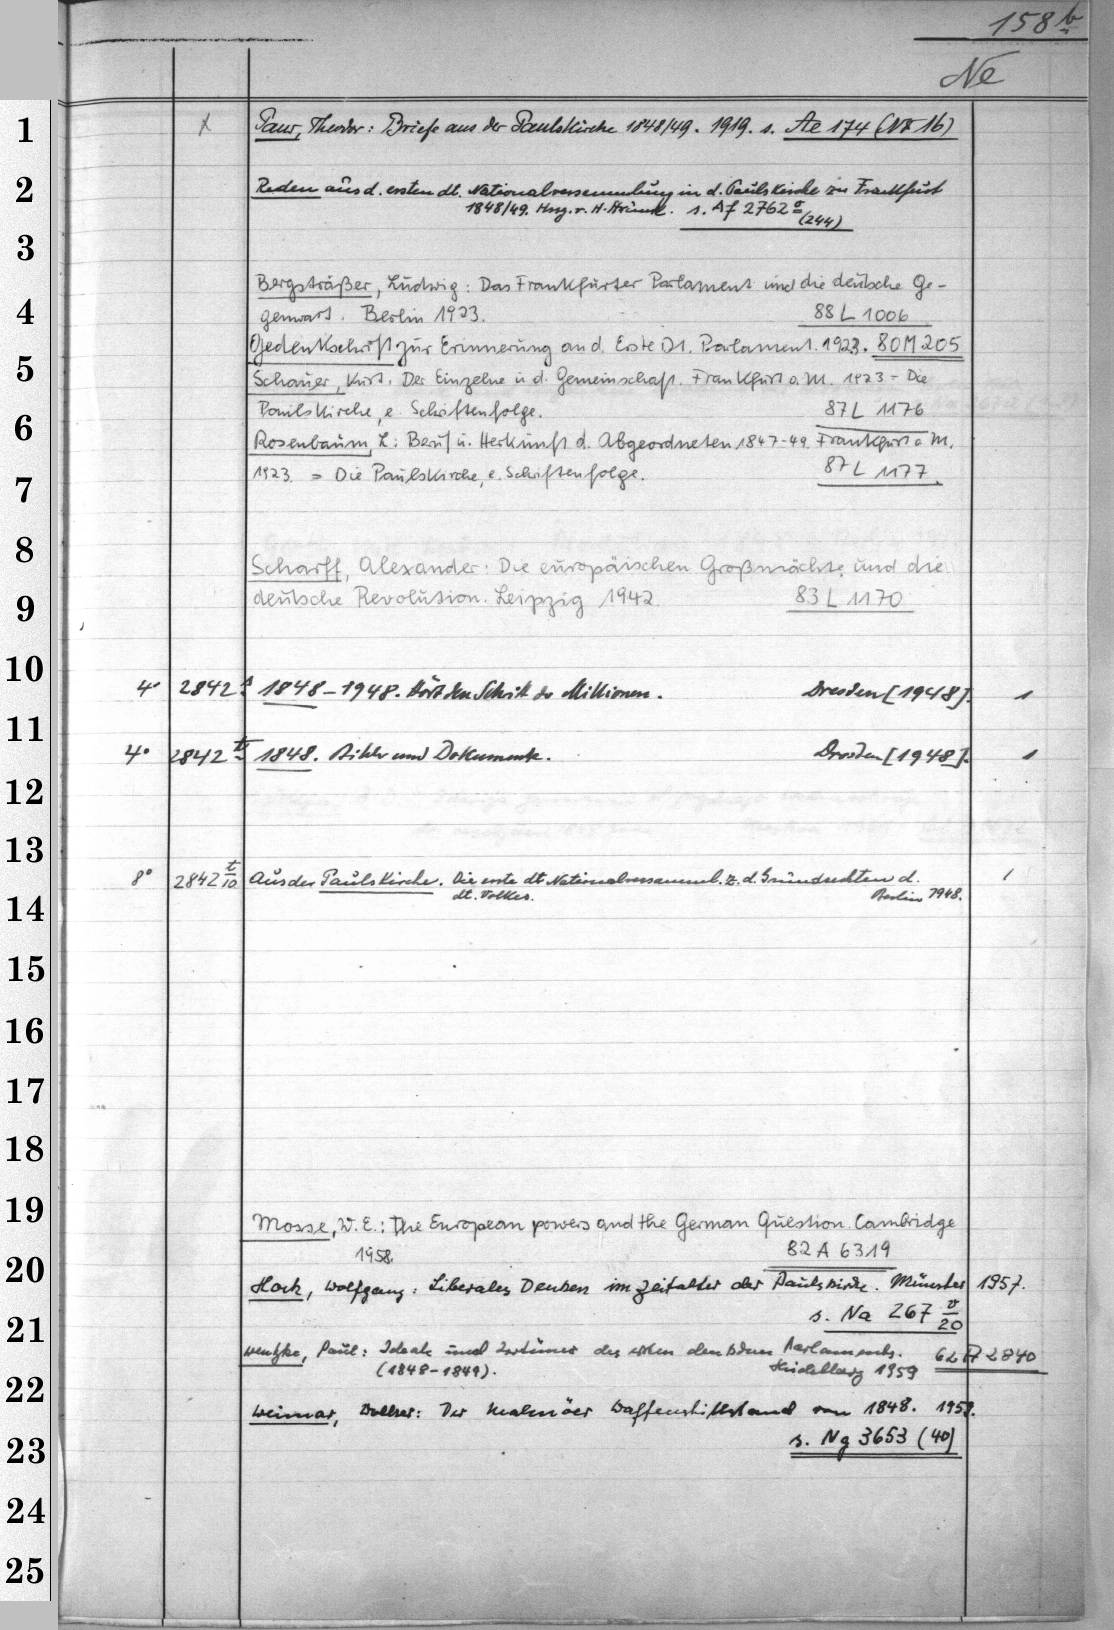 158 b
Ne
1 Paur, Theodor: Briefe aus der Paulskirche 1848/49. 1919. s. Ae 174 (NF 16)
2 Reden aus d. ersten dt. Nationalversammlung in d. Paulskirche zu Frankfurt
1848/49. Hrsg. v. H. Strunk. s. Af 2762 (244)
3
Bergsträßer, Ludwig: Das Frankfurter Parlament und die deutsche Ge-
4 genwart. Berlin 1923. 88 L 1006
Gedenkschrift zur Erinnerung an d. Erste Dt. Parlament. 1923. 80 M 205
5 Schauer, Kurt. Der Einzelne u d. Gemeinschaft. Frankfurt a. M. 1923 = Die
Paulskirche, e. Schriftenfolge. 87 L 1176
6 Rosenbaum, L: Beruf u. Herkunft d. Abgeordneten 1847-49. Frankfurt a. M.
7 1923. = Die Paulskirche, e. Schriftenfolge. 87 L 1177
8 Scharff, Alexander: Die europäischen Großmächte und die
9 deutsche Revolution. Leipzig 1942. 83 L 1170
10 4° 2842 s 1848-1948. Hört den Schritt der Millionen. Dresden [1948]. 1
11 4° 2842 t 1848. Bilder und Dokumente. Dresden [1948]. 1
12
13 8° 2842 t/10 Aus der Paulskirche. Die erste dt Nationalversamml. z. d. Grundrechten d. 1
14 dt. Volkes. Berlin 1948.
15
16
17
18
19 Mosse, W. E.: The European powers and the German Question. Cambridge
1958. 82 A 6319
20 Hock, Wolfgang: Liberales Denken im Zeitalter der Paulskirche. Münster 1957.
21 s. Na 267 v/20
Wentzke, Paul: Ideale und Irrtümer des ersten deutschen Parlaments. 62 A 2840
22 (1848-1849). Heidelberg 1959
Weimar, Volker: Der Malmöer Waffenstillstand von 1848. 1959.
23 s. Ng 3653 (40)
24
25